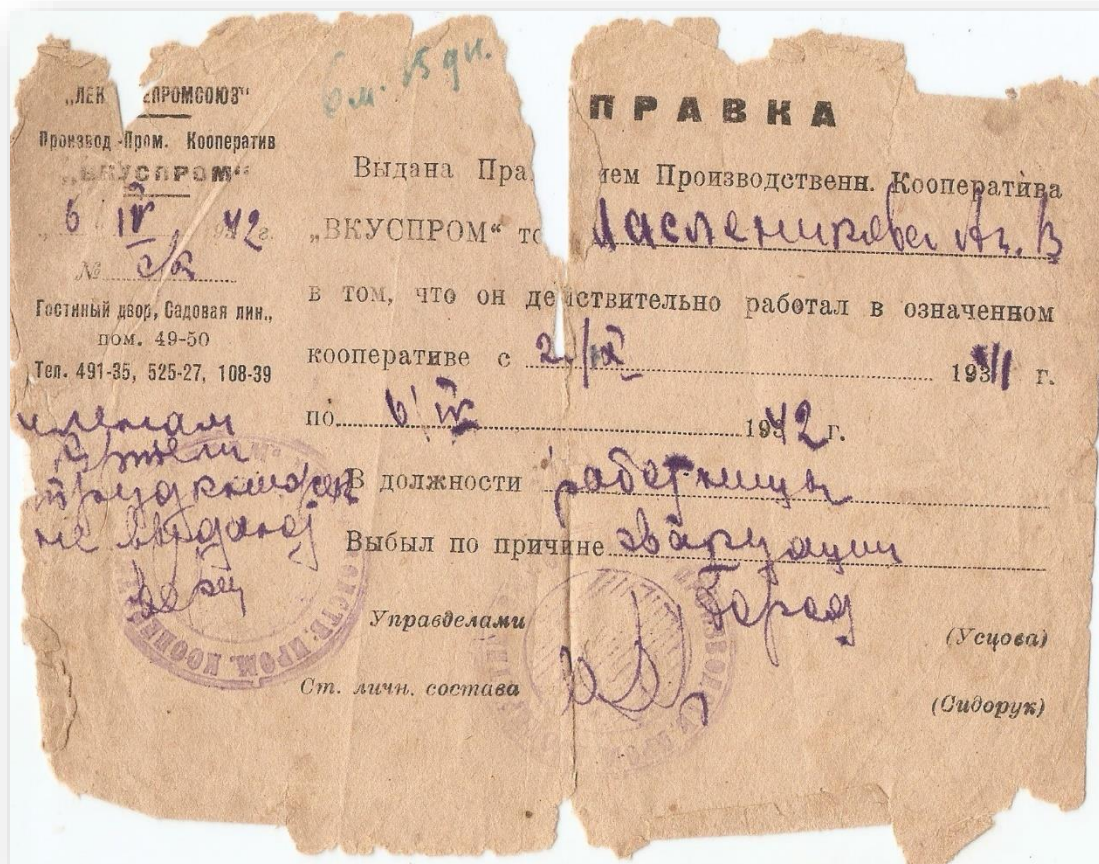 6 м. 15 дн.
„ЛЕН ЕПРОМСОЮЗ“
Производ.-Пром. Кооператив
„ВКУСПРОМ“
6 IV 1942 г.
№
Гостиный двор, Садовая лин.,
пом. 49-50
Тел. 491-35, 525-27, 108-39
членам
артели
трудкнижек
не выдано
ПРАВКА
Выдана Пра ием Производственн. Кооператива
„ВКУСПРОМ“ то Масленикова Ан. В
в том, что он действительно работал в означенном
кооперативе с 2 /IX 1941 г.
по 6/IV 1942 г.
В должности работницы
Выбыл по причине эвакуации
Управделами (Усцова)
Ст. личн. состава (Сидорук)